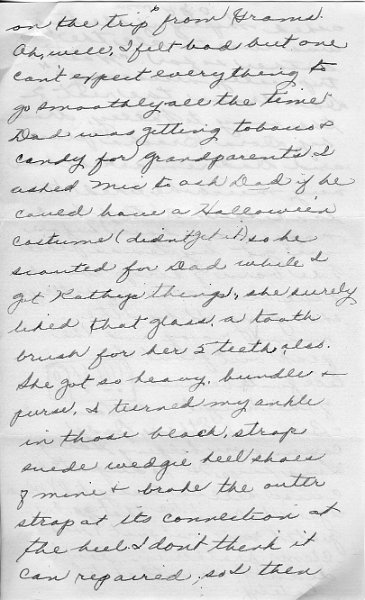 on the trip to from Grams.
Ah, well, I felt bad but one
can't expect everything to
go smoothly all the time.
Dad was getting tobacco &
candy for grandparents. I
asked Mic to ask Dad if he
could have a Halloween
costume (didn't get it) so he
scouted for Dad while I
got Kathy's things, she surely
liked that glass, a tooth
brush for her 5 teeth, also.
She got so heavy, bundle &
purse, I turned my ankle
in those black, strap
suede wedgie heel shoes
of mine & broke the outer
strap at its connection at
the heel. I don't think it
can repaired, so I then